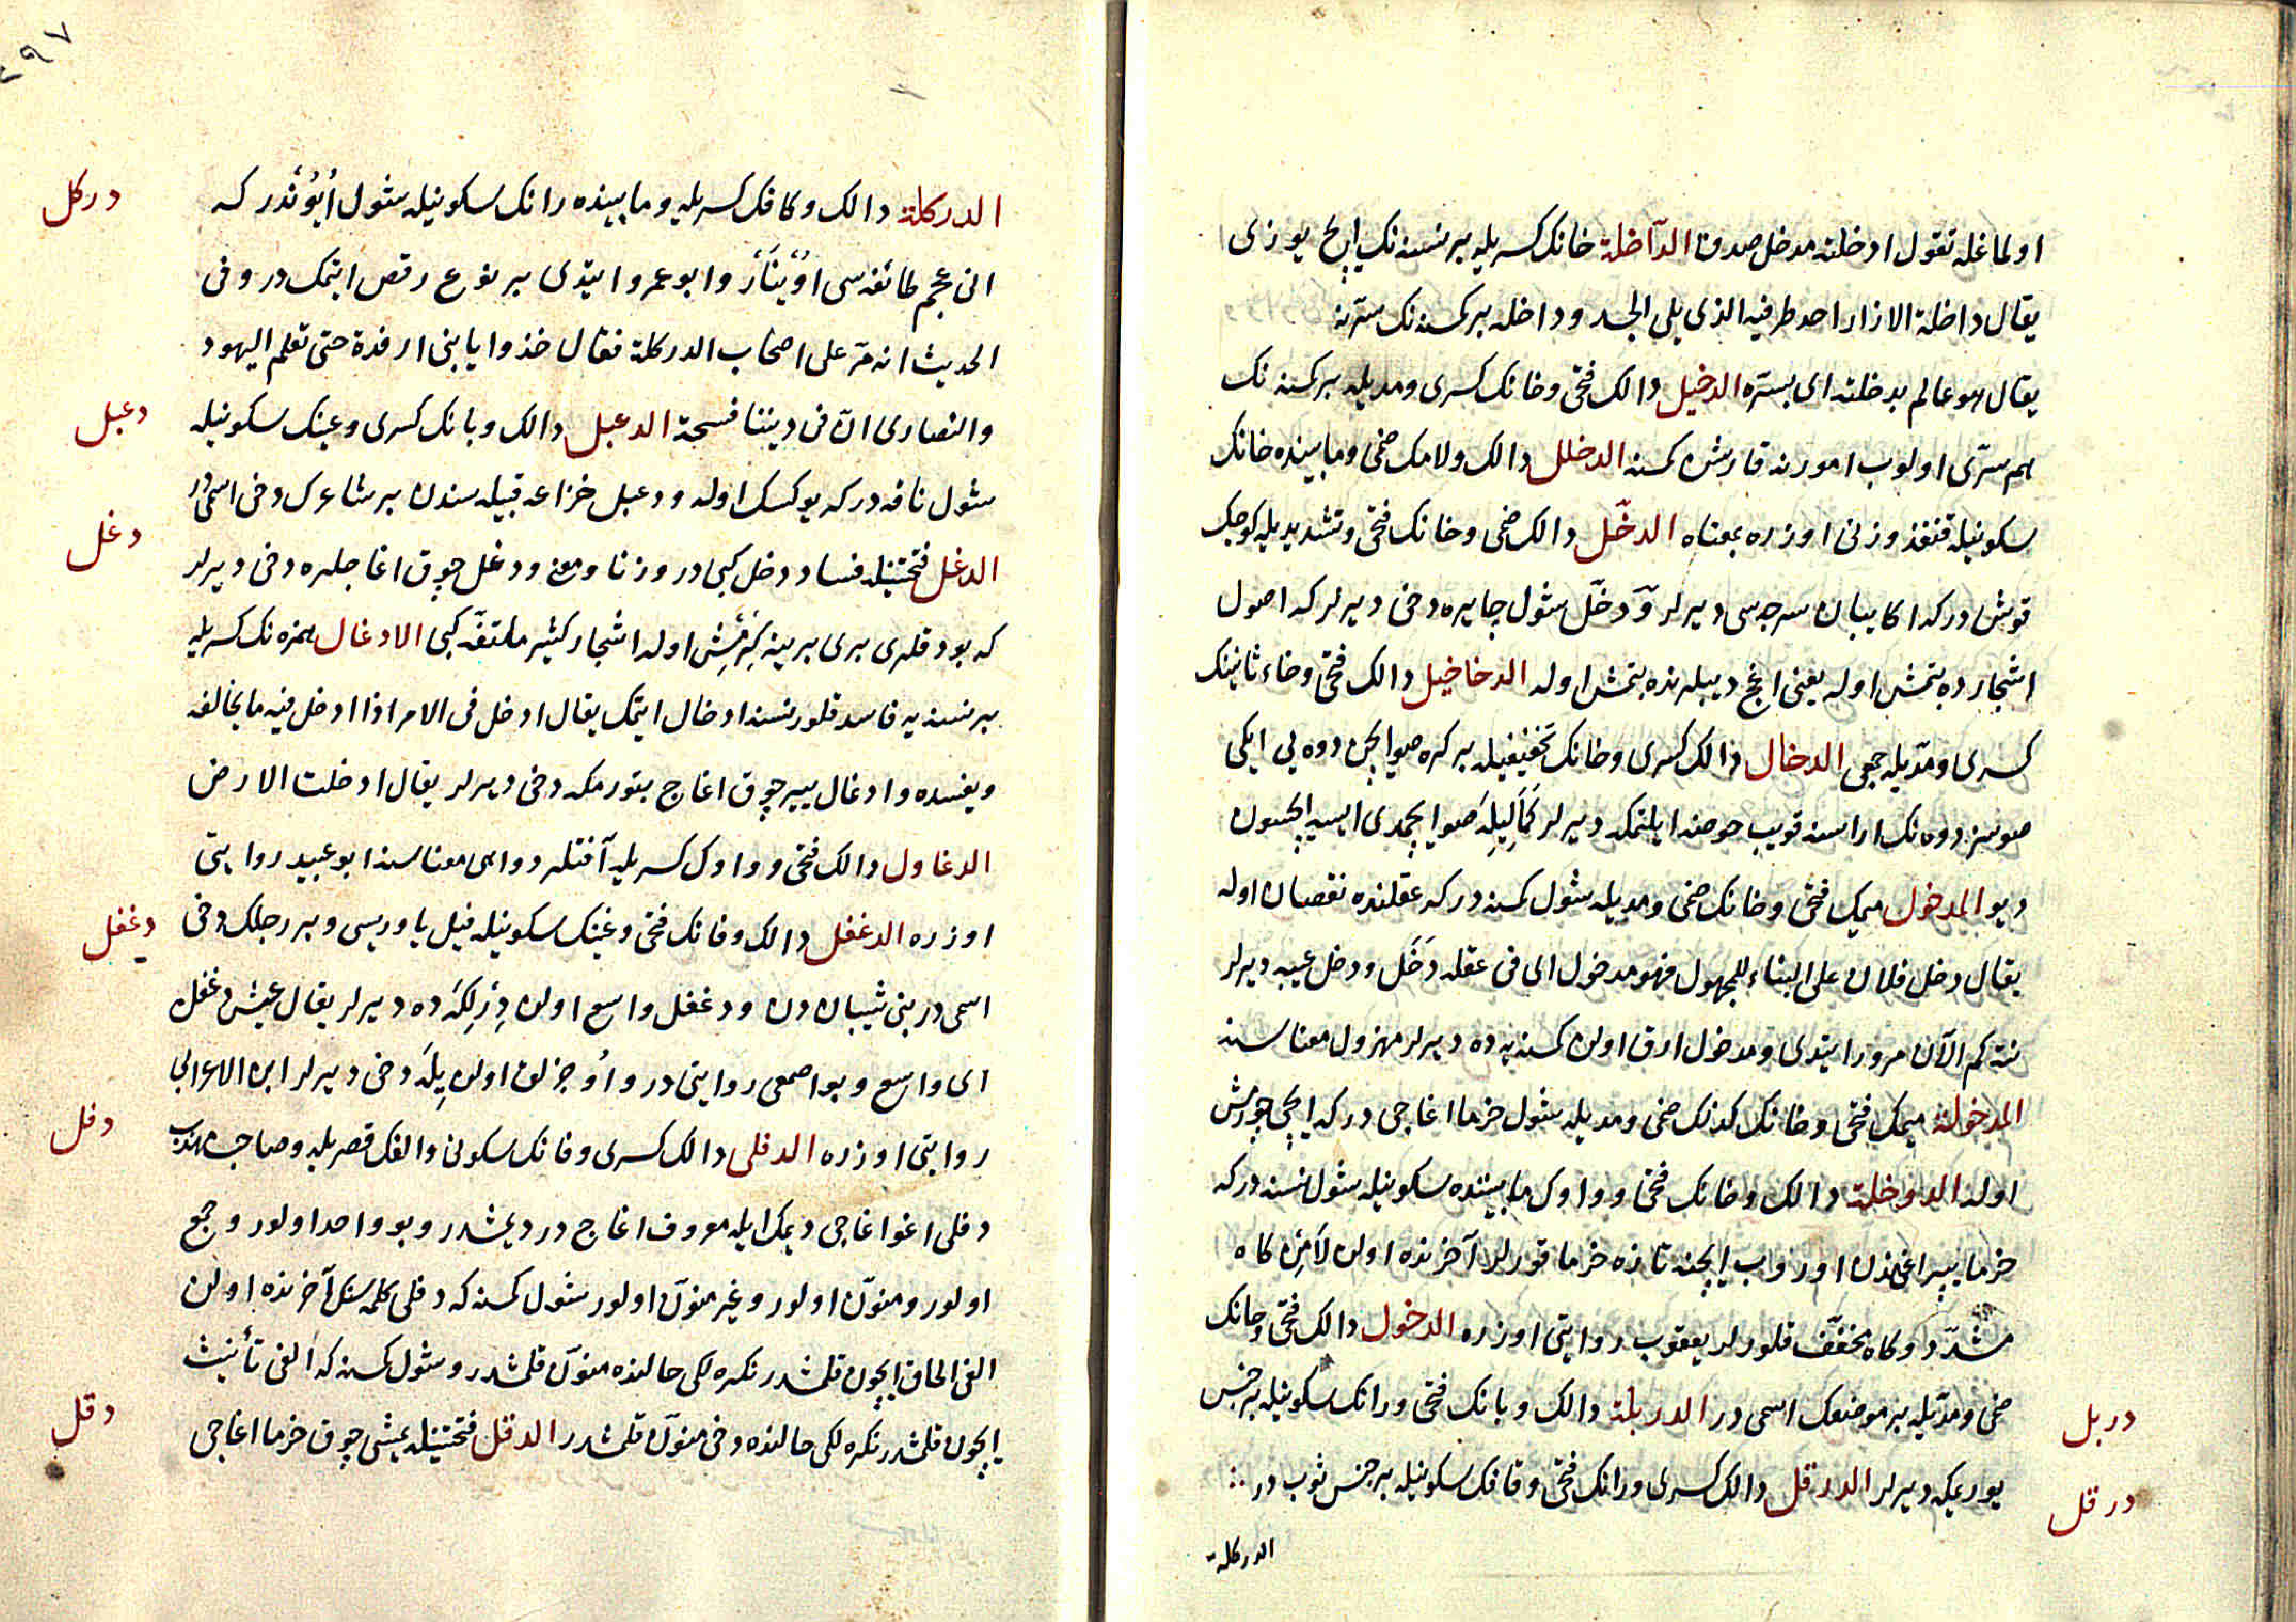 اولماغله تقول ادخلته مدخل صدق الدآخلة خانك كسريله برنسنه نك ايچ يوزى
يقال داخلة الازار احد طرفيه الذى يلى الجسد وداخله بر كمسنه نك سترينه
يقال هو عالم بدخلته اى بسترّه الدخيل دالك فتحى وخانك كسرى ومديله بر كمسنه نك
هم سرّى اولوب امورنه قارشن كمسنه الدخلل دالك ولامك ضمى ومابينده خانك
سكونيله قنفذ وزنى اوزره بمعناه الدخّل دالك ضمى وخانك فتحى وتشديديله كوچك
قوش در كه اكا يبان سرچه سى ديرلر ودخّل شول چايره دخى ديرلر كه اصول
اشجارده بتمش اوله يعنى اغج ديبلرنده بتمش اوله الدخاخيل دالك فتحى وخاء ثانينك
كسرى ومدّيله جمعى الدخال دالك كسرى وخانك تخفيفيله بر كره صو ايچن دوه يى ايكى
صوسز دوه نك اراسنه قويب حوضه ايلتمكه ديرلر صو ايچمدى ايسه ايچسون
ديو المدخول ميمك فتحى وخانك ضمى ومديله شول كمسنه در كه عقلنده نقصان اوله
يقال دخل فلان على البناء للمجهول فهو مدخول اى فى عقله دَخَل ودخل عيبه ديرلر
نته كم الآن مرور ايتدى ومدخول ارق اولن كمسنه يه ده ديرلر مهزول معناسنه
المدخولة ميمك فتحى وخانك كذلك ضمى ومديله شول خرما اغاجى در كه ايچى چورمش
اوله الدوخلة دالك وخانك فتحى وواوك مابينده سكونيله شول نسنه در كه
خرما يپراغندن اورر ايچنه تازه خرما قورلر آخرنده اولن لامى كاه
مشدّد وكاه مخفّف قلورلر يعقوب روايتى اوزره الدخول دالك فتحى وخانك
ضمى ومدّيله بر موضعك اسمى در الدربلة دالك وبانك فتحى ورانك سكونيله بر جنس
يوريمكه ديرلر الدرقل دالك كسرى ورانك فتحى وقافك سكونيله بر جنس ثوب در
دربل
درقل
الدركلة
٢٩٧
الدركلة دالك وكافك كسريله ومابينده رانك سكونيله شول اُيُوندر كه
انى عجم طائفه سى اوينار وابو عمرو ايتدى بر نوع رقص ايتمك در وفى
الحديث انه مرّ على اصحاب الدركلة فقال خذوا يا بنى ارفدة حتى تعلم اليهود
والنصارى انّ فى ديننا فسحة الدعبل دالك وبانك كسرى وعينك سكونيله
شول ناقه در كه يوكسك اوله ودعبل خزاعه قبيله سندن بر شاعرك دخى اسمى در
الدغل فتحتينله فساد دخل كبى در وزنا ومعنى ودغل چوق اغاجلره دخى ديرلر
كه بوداقلرى برى برينه كيرمش اوله اشجار كثير ملتفّه كبى الادغال همزه نك كسريله
بر نسنه يه فاسد قلور نسنه ادخال ايتمك يقال ادغل فى الامر اذا ادخل فيه ما يخالفه
ويفسده وادغال يير چوق اغاج بتورمكه دخى ديرلر يقال ادغلت الارض
الدغاول دالك فتحى وواوك كسريله آفتلر دواهى معناسنه ابو عبيد روايتى
اوزره الدغفل دالك وفانك فتحى وغينك سكونيله فيل ياوريسى وبر رجلك دخى
اسمى در بنى شيبان دن ودغفل واسع اولن ديرلكه ده ديرلر يقال عيش دغفل
اى واسع وبو اصمعى روايتى در واوجزلق اولن يِلَه دخى ديرلر ابن الاعرابى
روايتى اوزره الدفلى دالك كسرى وفانك سكونى والفك قصريله وصاحب مهذب
دفلى اغو اغاجى ديمك ايله معروف اغاج در ديمشدر وبو واحد اولور وجمع
اولور ومنوّن اولور وغير منوّن اولور شول كمسنه كه دفلى كلمه سنك آخرنده اولن
الفى الحاق ايچون قلمشدر نكره لكى حالنده منوّن قلمشدر وشول كمسنه كه الفى تأنيث
ايچون قلمشدر نكره لكى حالنده دخى منوّن قلمشدر الدقل فتحتينله يمشى چوق خرما اغاجى
دركل
دعبل
دغل
دغفل
دفل
دقل